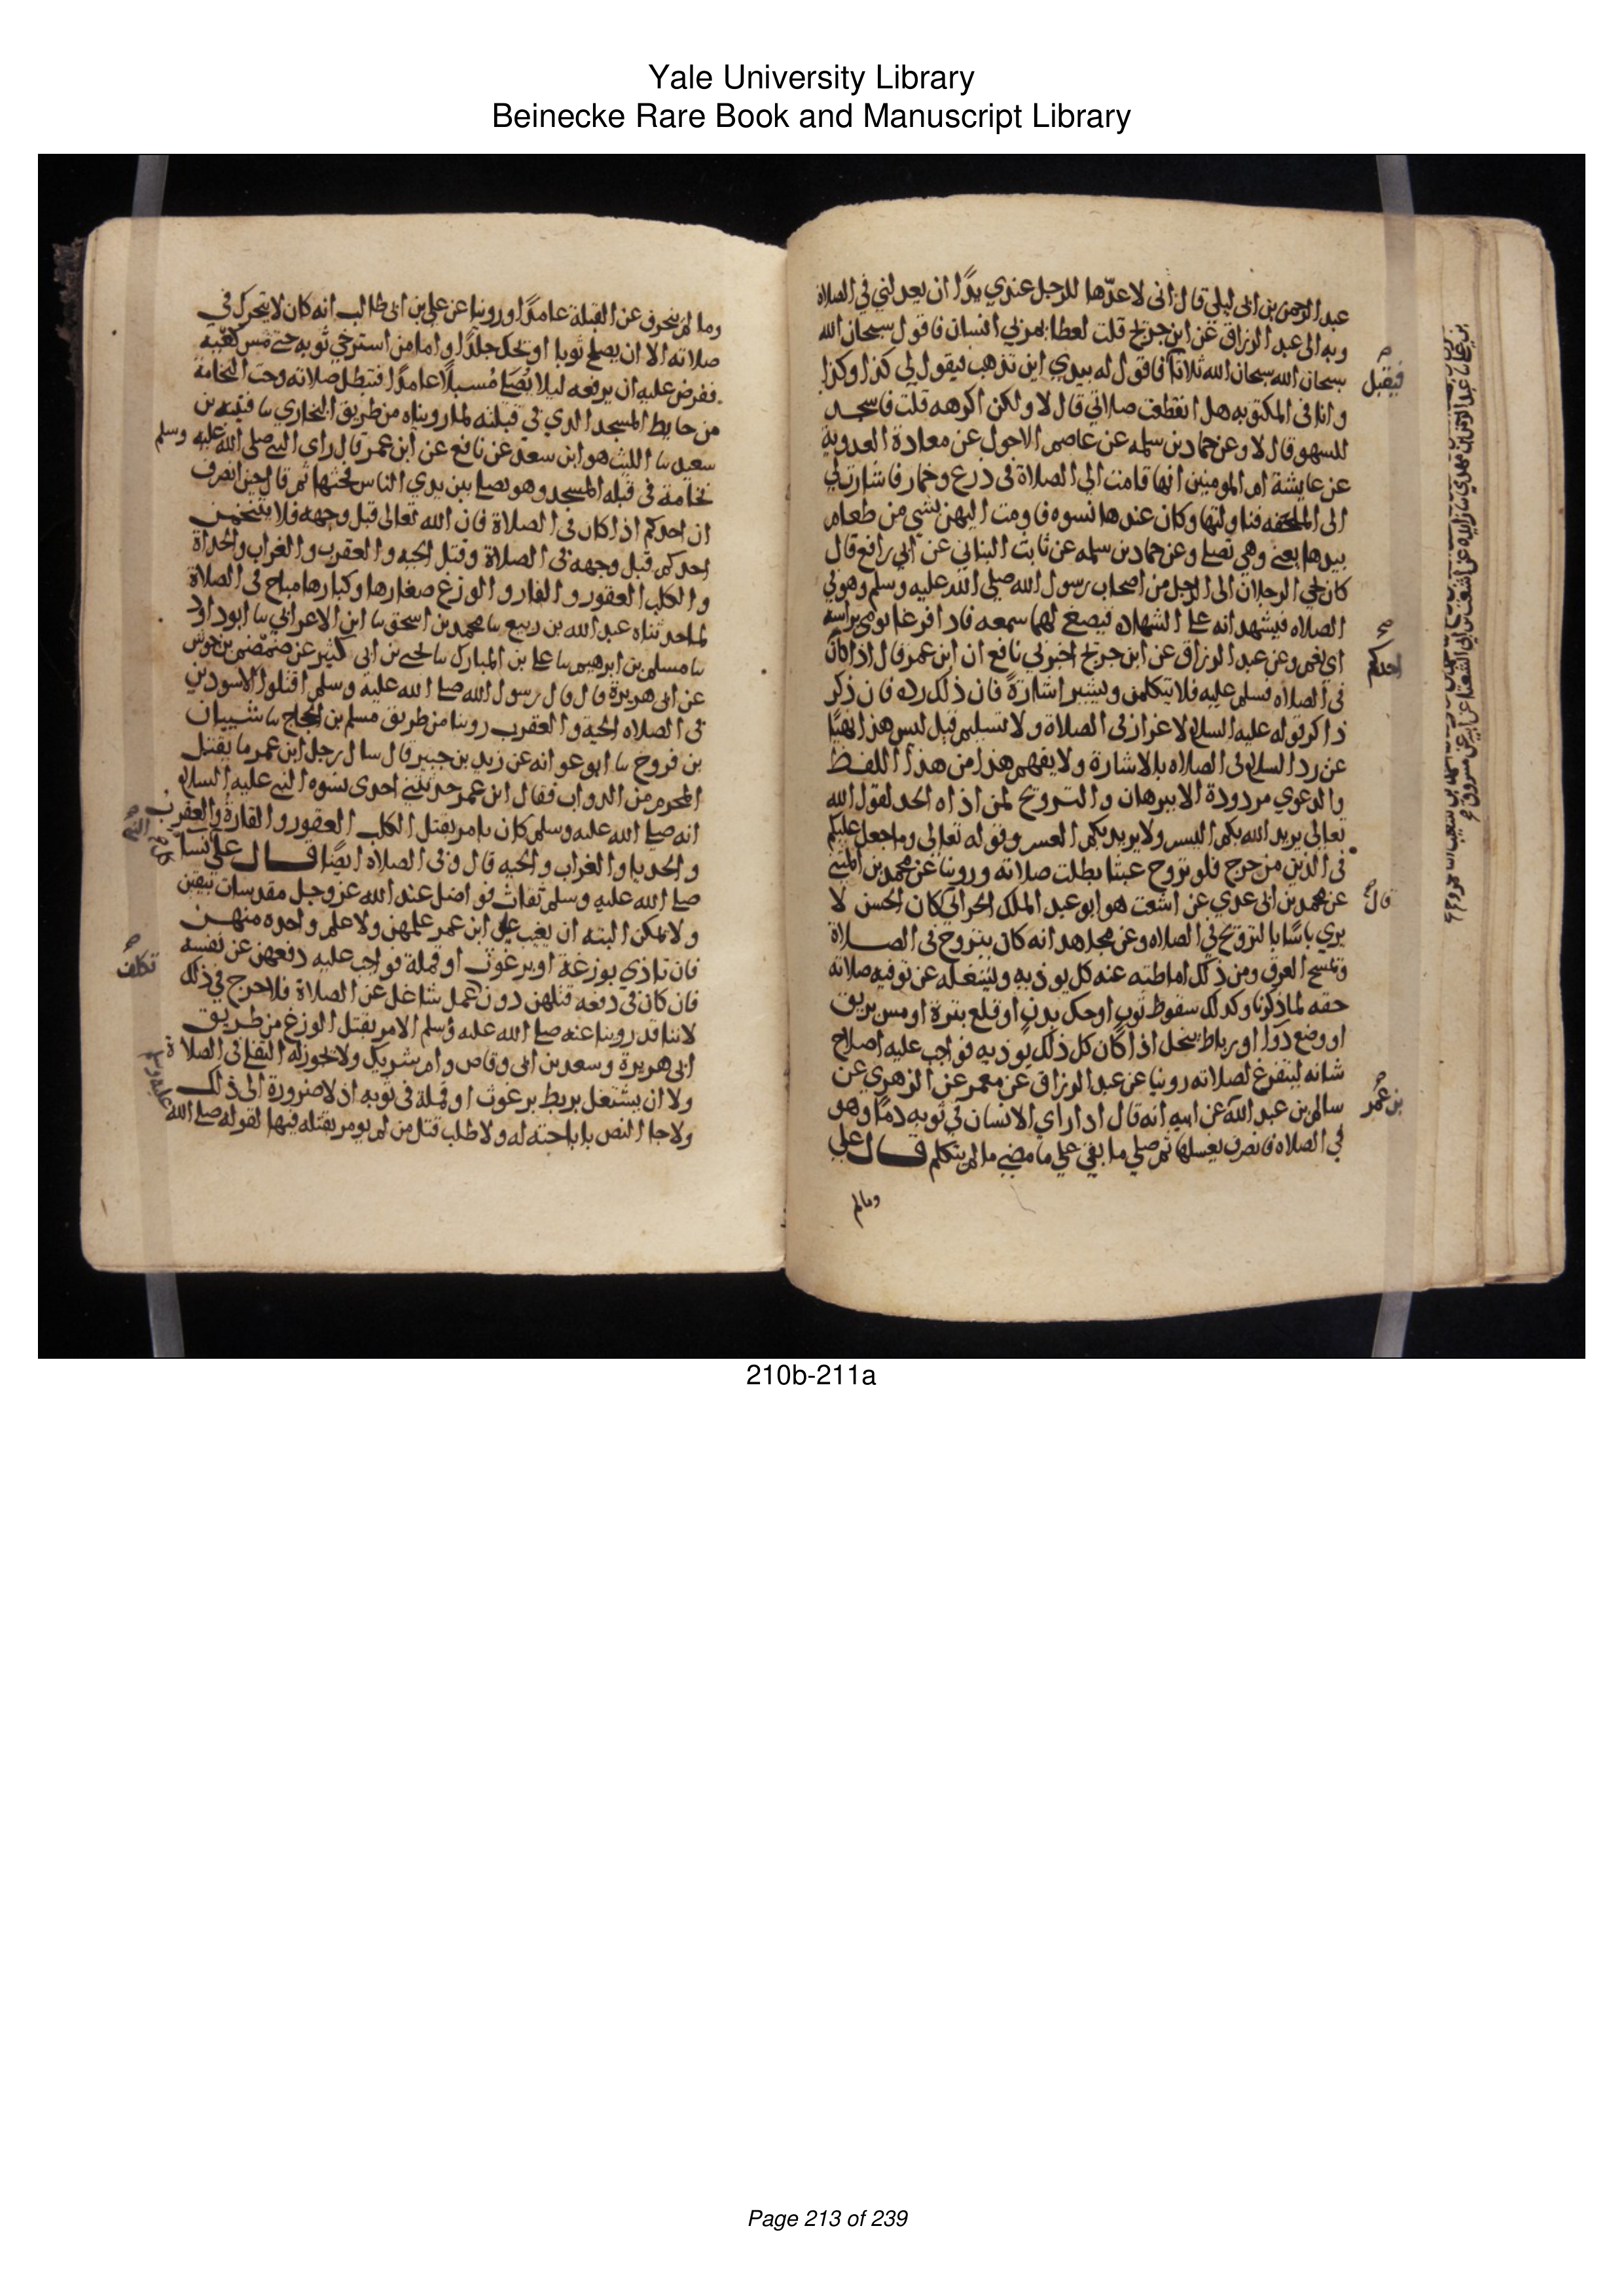 Yale University Library
Beinecke Rare Book and Manuscript Library
عبد الرحمن بن ابى ليلي قال انى لاعدّها للرجل عندي يدًا ان يعدلني في الصلاة
وبه الى عبد الرزاق عن ابن جريج قلت لعطا يمر بي انسان فاقول سبحان الله
سبحان الله سبحان الله ثلاثا فاقول له بيدي اين تذهب فيقول لي كذا وكذا
فيقبل
وانا فى المكتوبه هل انقطعت صلاتي قال لا ولكن اكرهه قلت فاسجد
للسهو قال لا وعن حماد بن سلمه عن عاصم الاحول عن معاذة العدوية
عن عايشة ام المومنين انها قامت الى الصلاة فى درع وخمار فاشارت لي
الى الملحفه فناولتها وكان عندها نسوه فاومت اليهن بشي من طعام
بيدها يعني وهي تصلي وعن حماد بن سلمه عن ثابت البناني عن ابي رافع قال
كان يجي الرجلان الى الرجل من اصحاب رسول الله صلى الله عليه وسلم وهو في
الصلاه فيشهدانه على الشهاده فيصغ لهما سمعه فاذا فرغا يومى براسه
اي نعم وعن عبد الرزاق عن ابن جريج اخبرني نافع ان ابن عمر قال اذا كان
احدكم
فى الصلاه فسلم عليه فلا يتكلمن ويشير اشارة فان ذلك رده فان ذكر
ذاكر قوله عليه السلام لا غرار فى الصلاة ولا تسليم قيل ليس هذا نهيا
عن رد السلام في الصلاه بالاشارة ولا يفهم هذا من هذا اللفظ
والدعوي مردودة الا ببرهان والترويح لمن اذاه الحر لقول الله
تعالى يريد الله بكم اليسر ولا يريد بكم العسر وقوله تعالى وما جعل عليكم
فى الدين من حرج فلو تروح عبثا بطلت صلاته وروينا عن محمد بن المثني
عن محمد بن ابى عدي عن اشعت هو ابو عبد الملك الحراني كان الحسن لا
قال
يري باسا بالترويح في الصلاه وعن مجاهد انه كان يتروح فى الصلاة
وتمسح العرق ومن ذلك اماطته عنه كل يوذيه ويشغله عن توفيه صلاته
حقه لما ذكرنا وكذلك سقوط ثوب او حك بدن او قلع بثرة او مس بريق
او وضع دوا او رباط منحل اذا كان كل ذلك يوذيه فواجب عليه اصلاح
شانه ليتفرغ لصلاته روينا عن عبد الرزاق عن معمر عن الزهري عن
سالم بن عبد الله عن ابيه انه قال اذا راي الانسان في ثوبه دما وهو
بن عمر
في الصلاه فانصرف يغسله ثم صلي ما بقي علي ما مضي ما لم يتكلم قال علي
ومالم
وما لم ينحرف عن القبلة عامدًا وروينا عن علي بن ابى طالب انه كان لا يتحرك في
صلاته الا ان يصلح ثوبا او يحك جلدًا واما من استرخي ثوبه حتى مس كعبيه
ففرض عليه ان يرفعه ليلا يُصَلي مُسبلًا عامدًا فتبطل صلاته وحت النخامة
من حايط المسجد الذي في قبلته لما رويناه من طريق البخاري نا قتيبه بن
سعيد نا الليث هو ابن سعد عن نافع عن ابن عمر قال راى النبي صلى الله عليه وسلم
نخامة فى قبله المسجد وهو يصلي بين يدي الناس فحتها ثم قال حين انصرف
ان احدكم اذا كان فى الصلاة فان الله تعالى قبل وجهه فلا يتنخمن
احدكم قبل وجهه فى الصلاة وقتل الحيه والعقرب والغراب والحدأة
والكلب العقور والفار والوزغ صغارها وكبارها مباح فى الصلاة
لما حدثناه عبد الله بن ربيع نا محمد بن اسحق نا ابن الاعرابي نا ابو داود
نا مسلم بن ابرهيم نا علي بن المبارك نا يحي بن ابي كثير عن ضمضم بن جوس
عن ابى هريرة قال قال رسول الله صلى الله عليه وسلم اقتلوا الاسودين
فى الصلاه الحية والعقرب روينا من طريق مسلم بن الحجاج نا شيبان
بن فروخ نا ابو عوانه عن زيد بن جبير قال سال رجل ابن عمر ما يقتل
المحرم من الدواب فقال ابن عمر حدثتني احدى نسوه النبي عليه السلام
انه صلى الله عليه وسلم كان يامر بقتل الكلب العقور والفارة والعقرب
والحديا والغراب والحيه قال وفى الصلاه ايضًا قال علي نسا
صلى الله عليه وسلم ثقات فواضل عند الله عز وجل مقدسات بيقين
ولا يمكن البته ان يغيب علي ابن عمر علمهن ولا علم واحده منهن
فان تاذي بوزغة او برغوث او قملة فواجب عليه دفعهن عن نفسه
تكلف
فان كان في دفعه قتلهن دون عمل شاغل عن الصلاة فلا حرج في ذلك
لاننا قد روينا عنه صلى الله عليه وسلم الامر بقتل الوزغ من طريق
ابى هريرة وسعد بن ابى وقاص وام شريك ولا يجوز له التفلى فى الصلاة
ولا ان يشتغل بربط برغوث او قملة فى ثوبه اذ لا ضرورة الى ذلك
ولا جا النص باباحته له ولا طلب قتل من لم يومر بقتله فيها لقوله صلى الله
210b-211a
Page 213 of 239